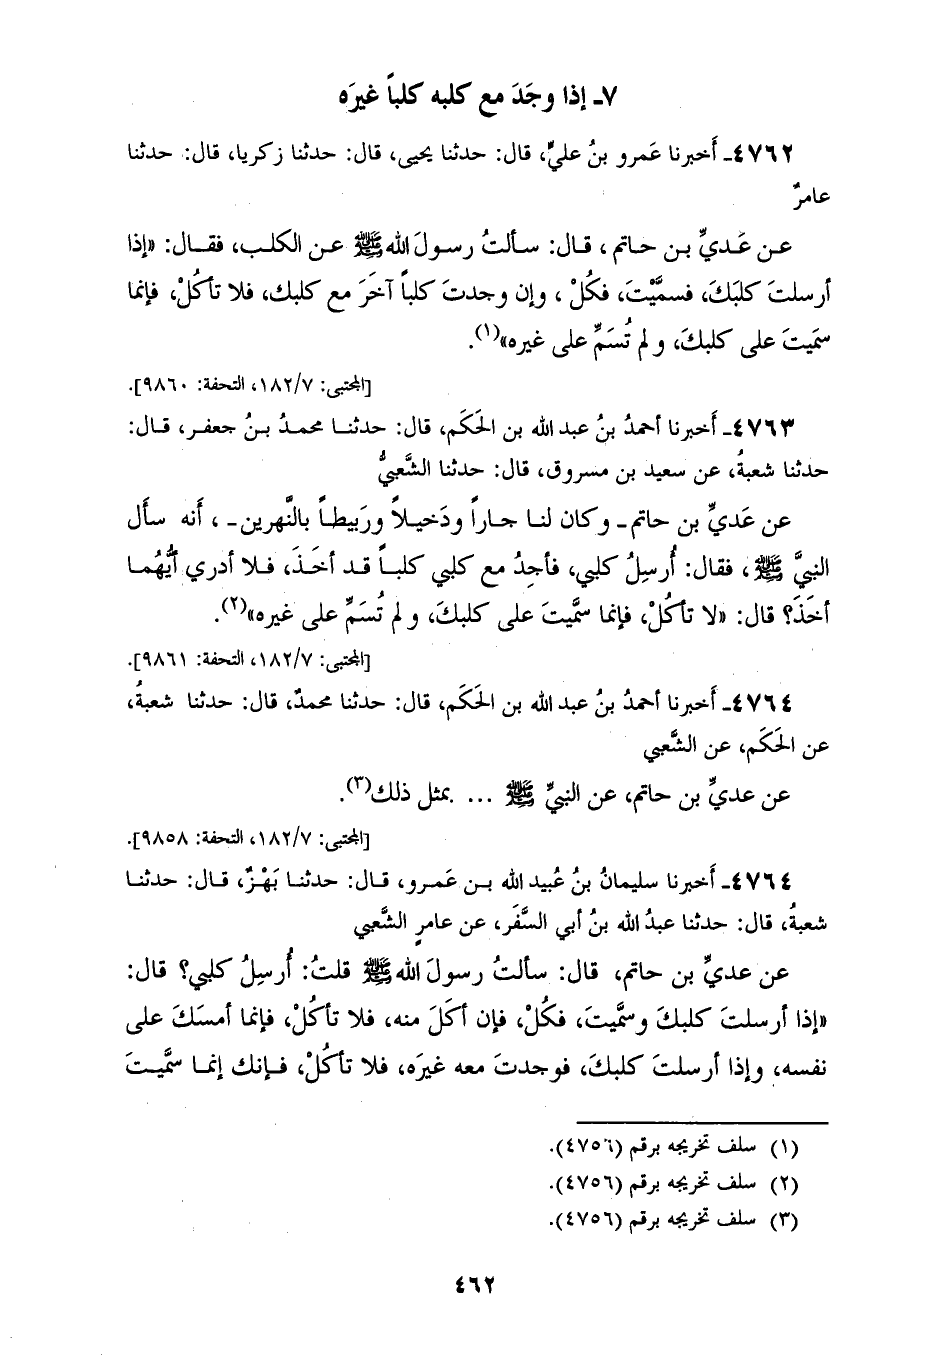 ٧ـ إذا وجَدَ مع كلبه كلباً غيرَه
٤٧٦٢ـ أَخبرنا عَمرو بنُ عليٍّ، قال: حدثنا يحيى، قال: حدثنا زكريا، قال: حدثنا
عامرٌ
عـن عَـديٍّ بـن حـاتم ، قـال: سـألتُ رسـولَ اللهﷺ عـن الكلـب، فقـال: «إذا
أرسلـتَ كلبَكَ، فسمَّيْتَ، فكُلْ ، وإن وجـدتَ كلباً آخرَ مع كلبك، فلا تأكُلْ، فإنما
سمَيتَ على كلبكَ، و لم تُسَمِّ على غيره»(١).
[المجتبى: ١٨٢/٧، التحفة: ٩٨٦٠].
٤٧٦٣ـ أَخبرنا أحمدُ بنُ عبد الله بن الحَكَم، قال: حدثنـا محمـدُ بـنُ جعفـر، قـال:
حدثنا شعبةُ، عن سعيد بن مسروق، قال: حدثنا الشَّعبيُّ
عن عَديٍّ بن حاتم ـ وكان لنـا جـاراً ودَخيـلاً ورَبيطـاً بالنَّهرين ـ ، أَنه سأل
النبيَّ ﷺ ، فقال: أُرسِلُ كلبي، فأجِدُ مع كلبي كلبـاً قـد أخَـذَ، فـلا أدري أيُّهُمـا
أخَذَ؟ قال: «لا تأكُلْ، فإنما سمَّيتَ على كلبكَ، و لم تُسَمِّ على غيره»(٢).
[المجتبى: ١٨٢/٧، التحفة: ٩٨٦١].
٤٧٦٤ـ أَخبرنا أحمدُ بنُ عبد الله بن الحَكَم، قال: حدثنا محمدٌ، قال: حدثنا شعبةُ،
عن الحَكَم، عن الشَّعبي
عن عديٍّ بن حاتم، عن النبيِّ ﷺ ... بمثل ذلك(٣).
[المجتبى: ١٨٢/٧، التحفة: ٩٨٥٨].
٤٧٦٤ـ أَخبرنا سليمانُ بنُ عُبيد الله بـن عَمـرو، قـال: حدثنـا بَهْـزٌ، قـال: حدثنـا
شعبةُ، قال: حدثنا عبدُ الله بنُ أبي السَّفَر، عن عامرٍ الشَّعبي
عن عديٍّ بن حاتم، قال: سألتُ رسولَ اللهﷺ قلتُ: أُرسِلُ كلبي؟ قال:
«إذا أرسلتَ كلبكَ وسمَّيتَ، فكُلْ، فإن أكَلَ منه، فلا تأكُلْ، فإنما أمسَكَ على
نفسه، وإذا أرسلتَ كلبكَ، فوجدتَ معه غيرَه، فلا تأكُلْ، فـإنك إنمـا سمَّيـتَ
(١) سلف تخريجه برقم (٤٧٥٦).
(٢) سلف تخريجه برقم (٤٧٥٦).
(٣) سلف تخريجه برقم (٤٧٥٦).
٤٦٢